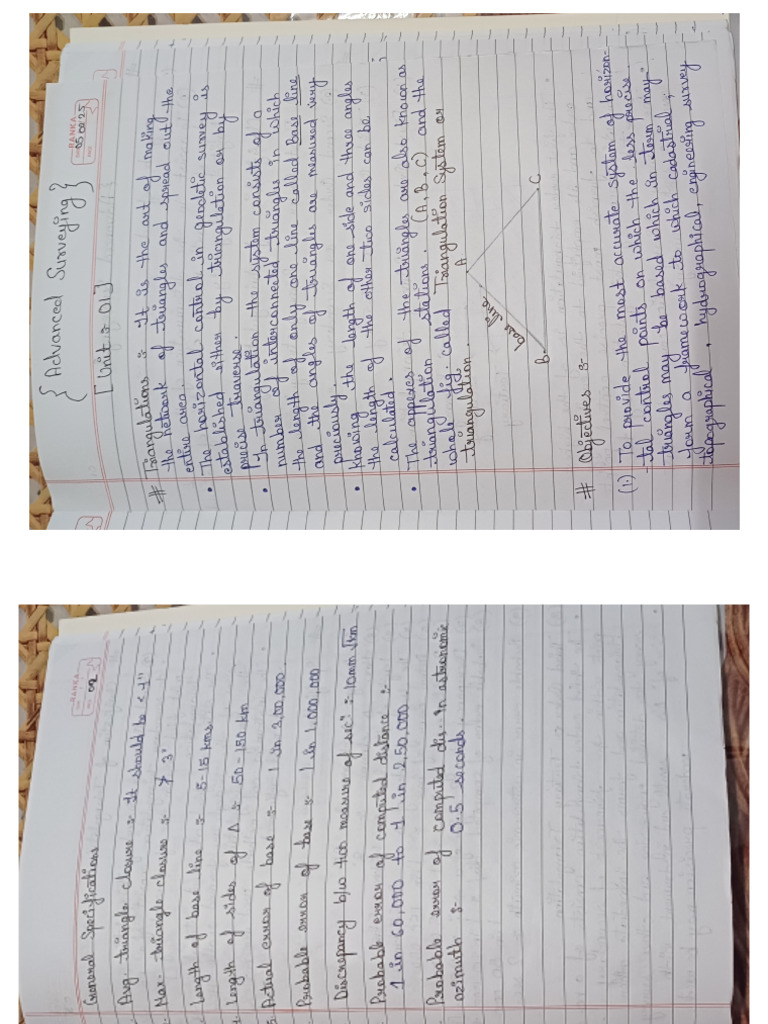 RANKA
05 02 25
{Advanced Surveying}
[Unit : 01]
# Triangulations :- It is the art of making
the network of triangles and spread out the
entire area.
• The horizontal control in geodetic survey is
established either by triangulation or by
precise traverse.
• In triangulation the system consists of a
number of interconnected triangles in which
the length of only one line called Base line
and the angles of triangles are measured very
preciously.
• knowing the length of one side and three angles
the length of the other two sides can be
calculated.
• The appexes of the triangles are also known as
triangulation stations. (A, B, C) and the
whole fig. called Triangulation System or
triangulation fig.
A
base line
B
C
# Objectives :-
(1.) To provide the most accurate system of horizon-
-tal control points on which the less precise
triangles may be based which in term may
form a framework to which cadastrial,
topographical, hydrographical, engineering survey
RANKA
02
General Specifications
Avg. triangle closure :- It should be < 1"
Max. triangle closure :- ≯ 3"
Length of base line :- 5-15 kms
Length of sides of Δ :- 50-150 km
5. Actual error of base :- 1 in 3,00,000
Probable error of base :- 1 in 1,000,000
Discrepancy b/w two measure of secⁿ :- 10mm √km
Probable error of computed distance :-
1 in 60,000 to 1 in 2,50,000.
Probable error of computed dis. in astronomic
azimuth :- 0.5 seconds.